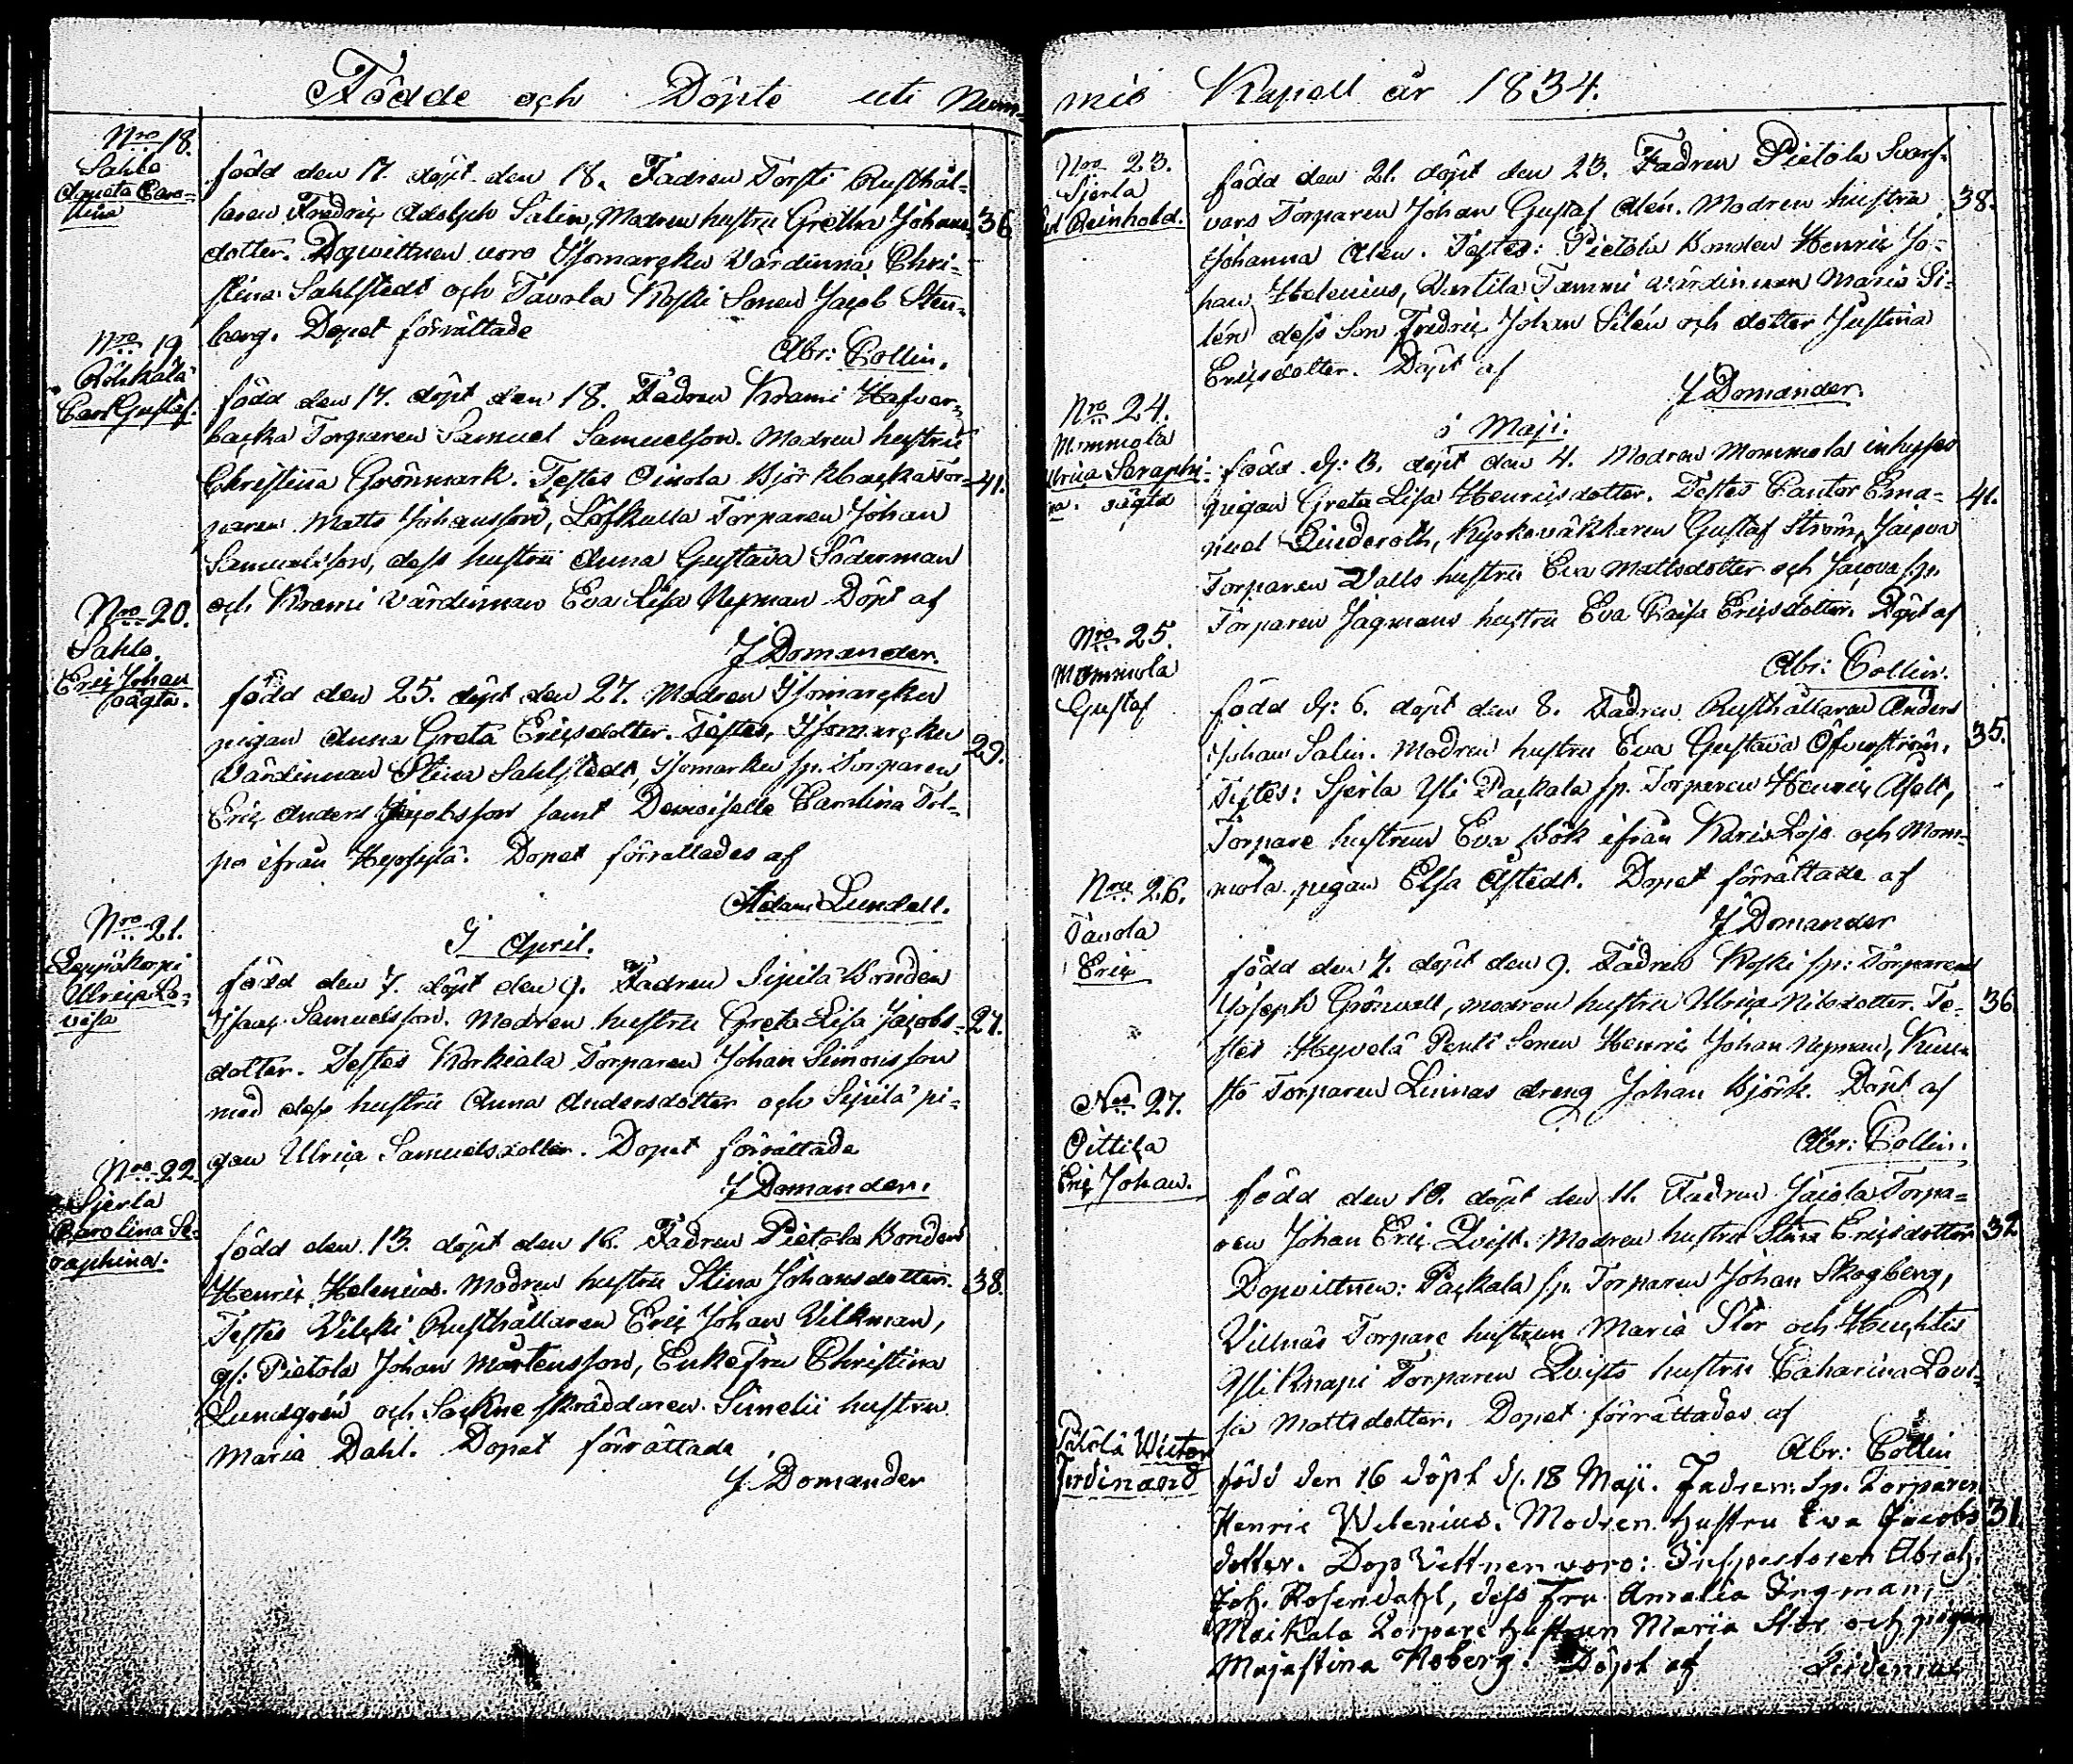 Födde och Döpte uti Num-
Nro 18.
Sahlo
Agneta Caro-
lina
född den 17. döpt den 18. Fadren Torsti Rusthål-
laren Fredric Adolph Salin, Modren hustru Gretha Johans-
36
dotter. Dopvittnen voro Isomarcku Värdinna Chri-
stina Sahlstedt och Tavola Koski Sonen Jacob Sten-
berg. Dopet förrättade
Abr: Collin.
Nro 19
Carl Gustaf.
född den 17. döpt den 18. Fadren Krami Hafver-
backa Torparen Samuel Samuelsson. Modren hustru
Christina Grönmark. Testes Oinola Björkbacka Tor-
41.
paren Matts Johansson, Löfkulla Torparen Johan
Samuelsson, dess hustru Anna Gustava Söderman
och Krami Värdinnan Eva Lisa Nyman Döpt af
J Domander.
Nro 20.
Sahlo.
Eric Johan
oägta.
född den 25. döpt den 27. Modren Isomarcku
pigan Anna Greta Ericsdotter. Testes, Isomarcku
29.
Värdinnan Stina Sahlstedt, Isomarcku sp. Torparen
Eric Anders Jacobsson samt Demoiselle Carolina Tol-
po ifrån Hyppylä. Dopet förrättades af
Adam Lundell.
I April.
Nro 21.
Leppäkorpi
Ulrica Lo-
visa
född den 7. döpt den 9. Fadren Sipilä Bonden
Isaac Samuelsson. Modren hustru Greta Lisa Jacobs-
27.
dotter. Testes Korkiala Torparen Johan Simonsson
med dess hustru Anna Andersdotter och Sipilä pi-
gan Ulrica Samuelsdotter. Dopet förrättade
J Domander.
Nro 22
Sjerla
Carolina Se-
raphina.
född den 13. döpt den 16. Fadren Pietola Bonden
Henric Helenius. Modren hustru Stina Johansdotter.
38.
Testes Vilcki Rusthållaren Eric Johan Vilkman,
gf: Pietola Johan Mårtensson, Enkefru Christina
Lundgrén och Sackne skräddaren Simelii hustru
Maria Dahl. Dopet förrättade
J Domander
mis Kapell år 1834.
Nro 23.
Sjerla
Reinhold.
född den 21. döpt den 23. Fadren Pietola Svarf-
vars Torparen Johan Gustaf Alén. Modren hustru
38.
Johanna Alen. Testes: Pietola Bonden Henric Jo-
han Helenius, Anttila Tammi värdinnan Maria Si-
lén dess Son Fredric Johan Silén och dotter Justina
Ericsdotter. Döpt af
J Domander.
i Maji.
Nro 24.
Mommola
Ulrica Seraphi-
na. oägta
född d: 3. döpt den 4. Modren Mommola inhyses
pigan Greta Lisa Henricsdotter. Testes Cantor Ema-
41.
nuel Linderoth, Kyrkoväktaren Gustaf Ström,
Torparen Valls hustru Eva Mattsdotter och sp.
Torparen Jagmans hustru Eva Kaisa Ericsdotter. Döpt af
Abr: Collin.
Nro 25.
Mommola
Gustaf
född d: 6. döpt den 8. Fadren Rusthållaren Anders
Johan Salin. Modren hustru Eva Gustava Öfverström.
35.
Testes: Sjerla Yli Packala sp. Torparen Henric
Torpare hustrun Eva Bök ifrån Karis Lojo och Mom-
mola pigan Elsa Åstedt. Dopet förrättade af
J Domander
Nro 26.
Tavola
Eric
född den 7. döpt den 9. Fadren Koski sp: Torparen
Joseph Grönvall, modren hustru Ulrica Nilsdotter. Te-
36
stes Hyvelä Penti Sonen Henric Johan Nyman,
Torparen Linnas dreng Johan Björk. Döpt af
Abr: Collin.
Nro 27.
Pittila
Eric Johan.
född den 10. döpt den 11. Fadren Torpa-
ren Johan Eric Qvist. Modren hustru Stina Ericsdotter
32
Dopvittnen: Packala sp. Torparen Johan Skogberg,
Villnäs Torpare hustrun Maria Stör och
Yli Knapi Torparen Qvists hustru Catharina Lovi-
sa Mattsdotter. Dopet förrättades af
Abr: Collin
Wictor
Ferdinand
född den 16 döpt d. 18 Maji. Fadren: Sp. Torparen
Henric Welenius. Modren hustru Eva Jacobs
31
dotter. Dop Vittnen voro: Inspectoren Abrah.
Joh. Rosendahl, dess Fru Amalia Ingman,
Maikala Torpare hustrun Maria Stör och pigan
Majastina Noberg. Döpt af
Leidenius